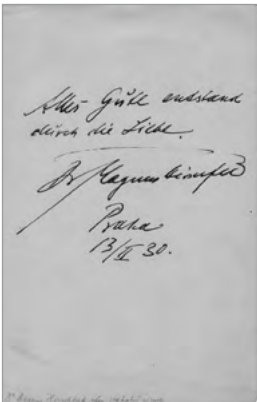 Alles Gute entstand
durch die Liebe.
Dr Magnus Hirschfeld
Praha
13/II 30.